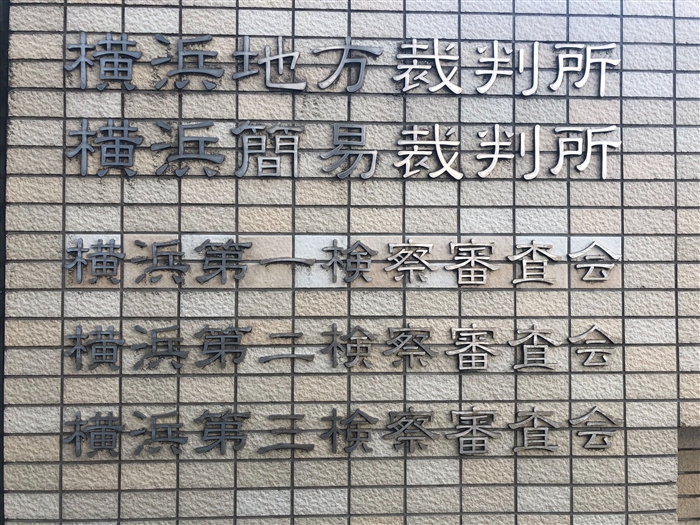 横浜地方裁判所
横浜簡易裁判所
横浜第一検察審査会
横浜第二検察審査会
横浜第三検察審査会